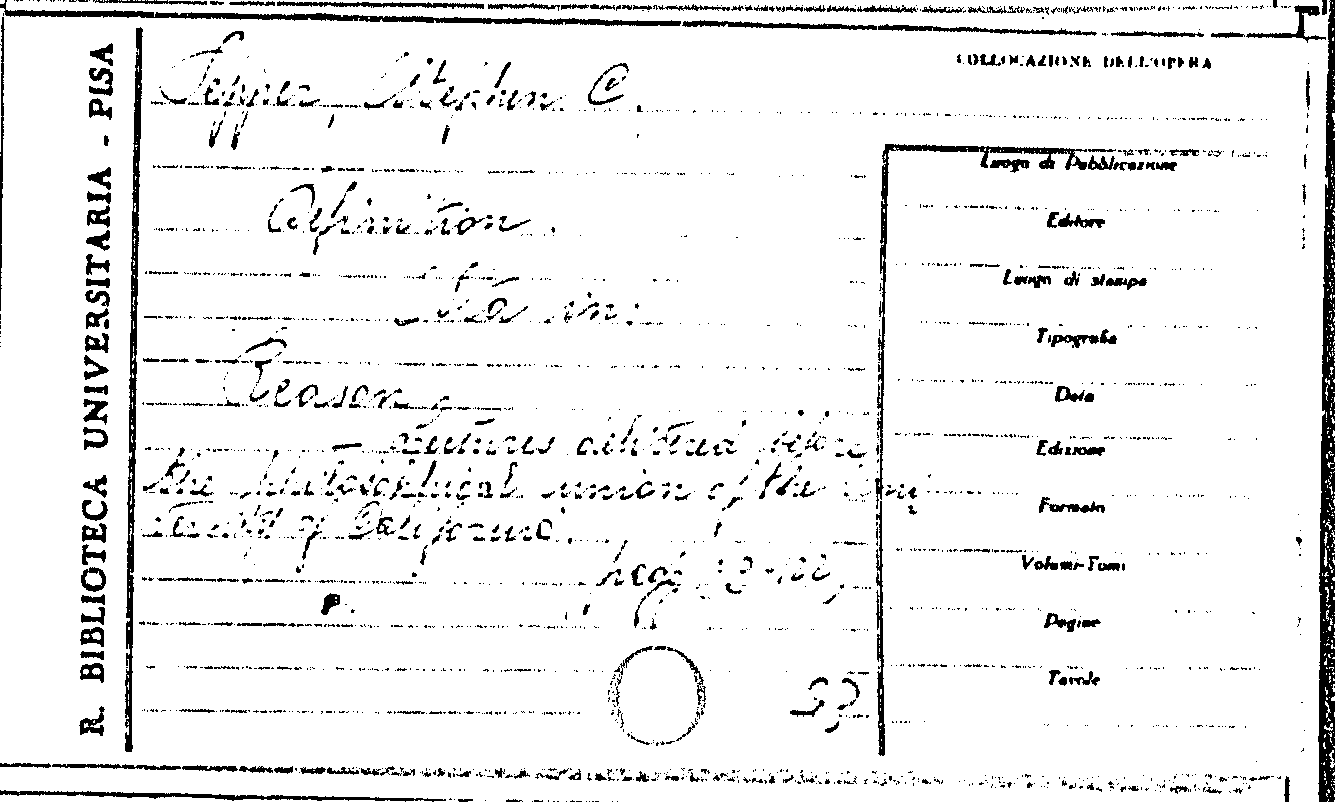 R. BIBLIOTECA UNIVERSITARIA - PISA
COLLOCAZIONE DELL'OPERA
Pepper, Stephen C.
Definition.
Sta in:
Reason
- Lectures delivered before
the philosophical union of the Uni
versity of California.
Luogo di Pubblicazione
Editore
Luogo di stampa
Tipografia
Data
Edizione
Formato
Volumi-Tomi
Pagine
Tavole